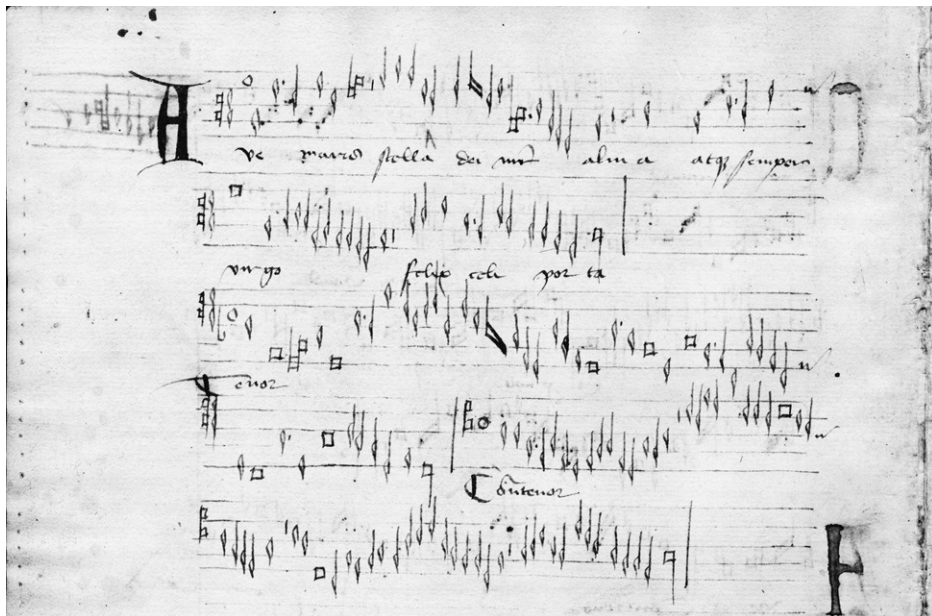 Ave maris stella dei mr̄ alma atqȝ semper
virgo felix celi porta
Tenor
Cōntenor